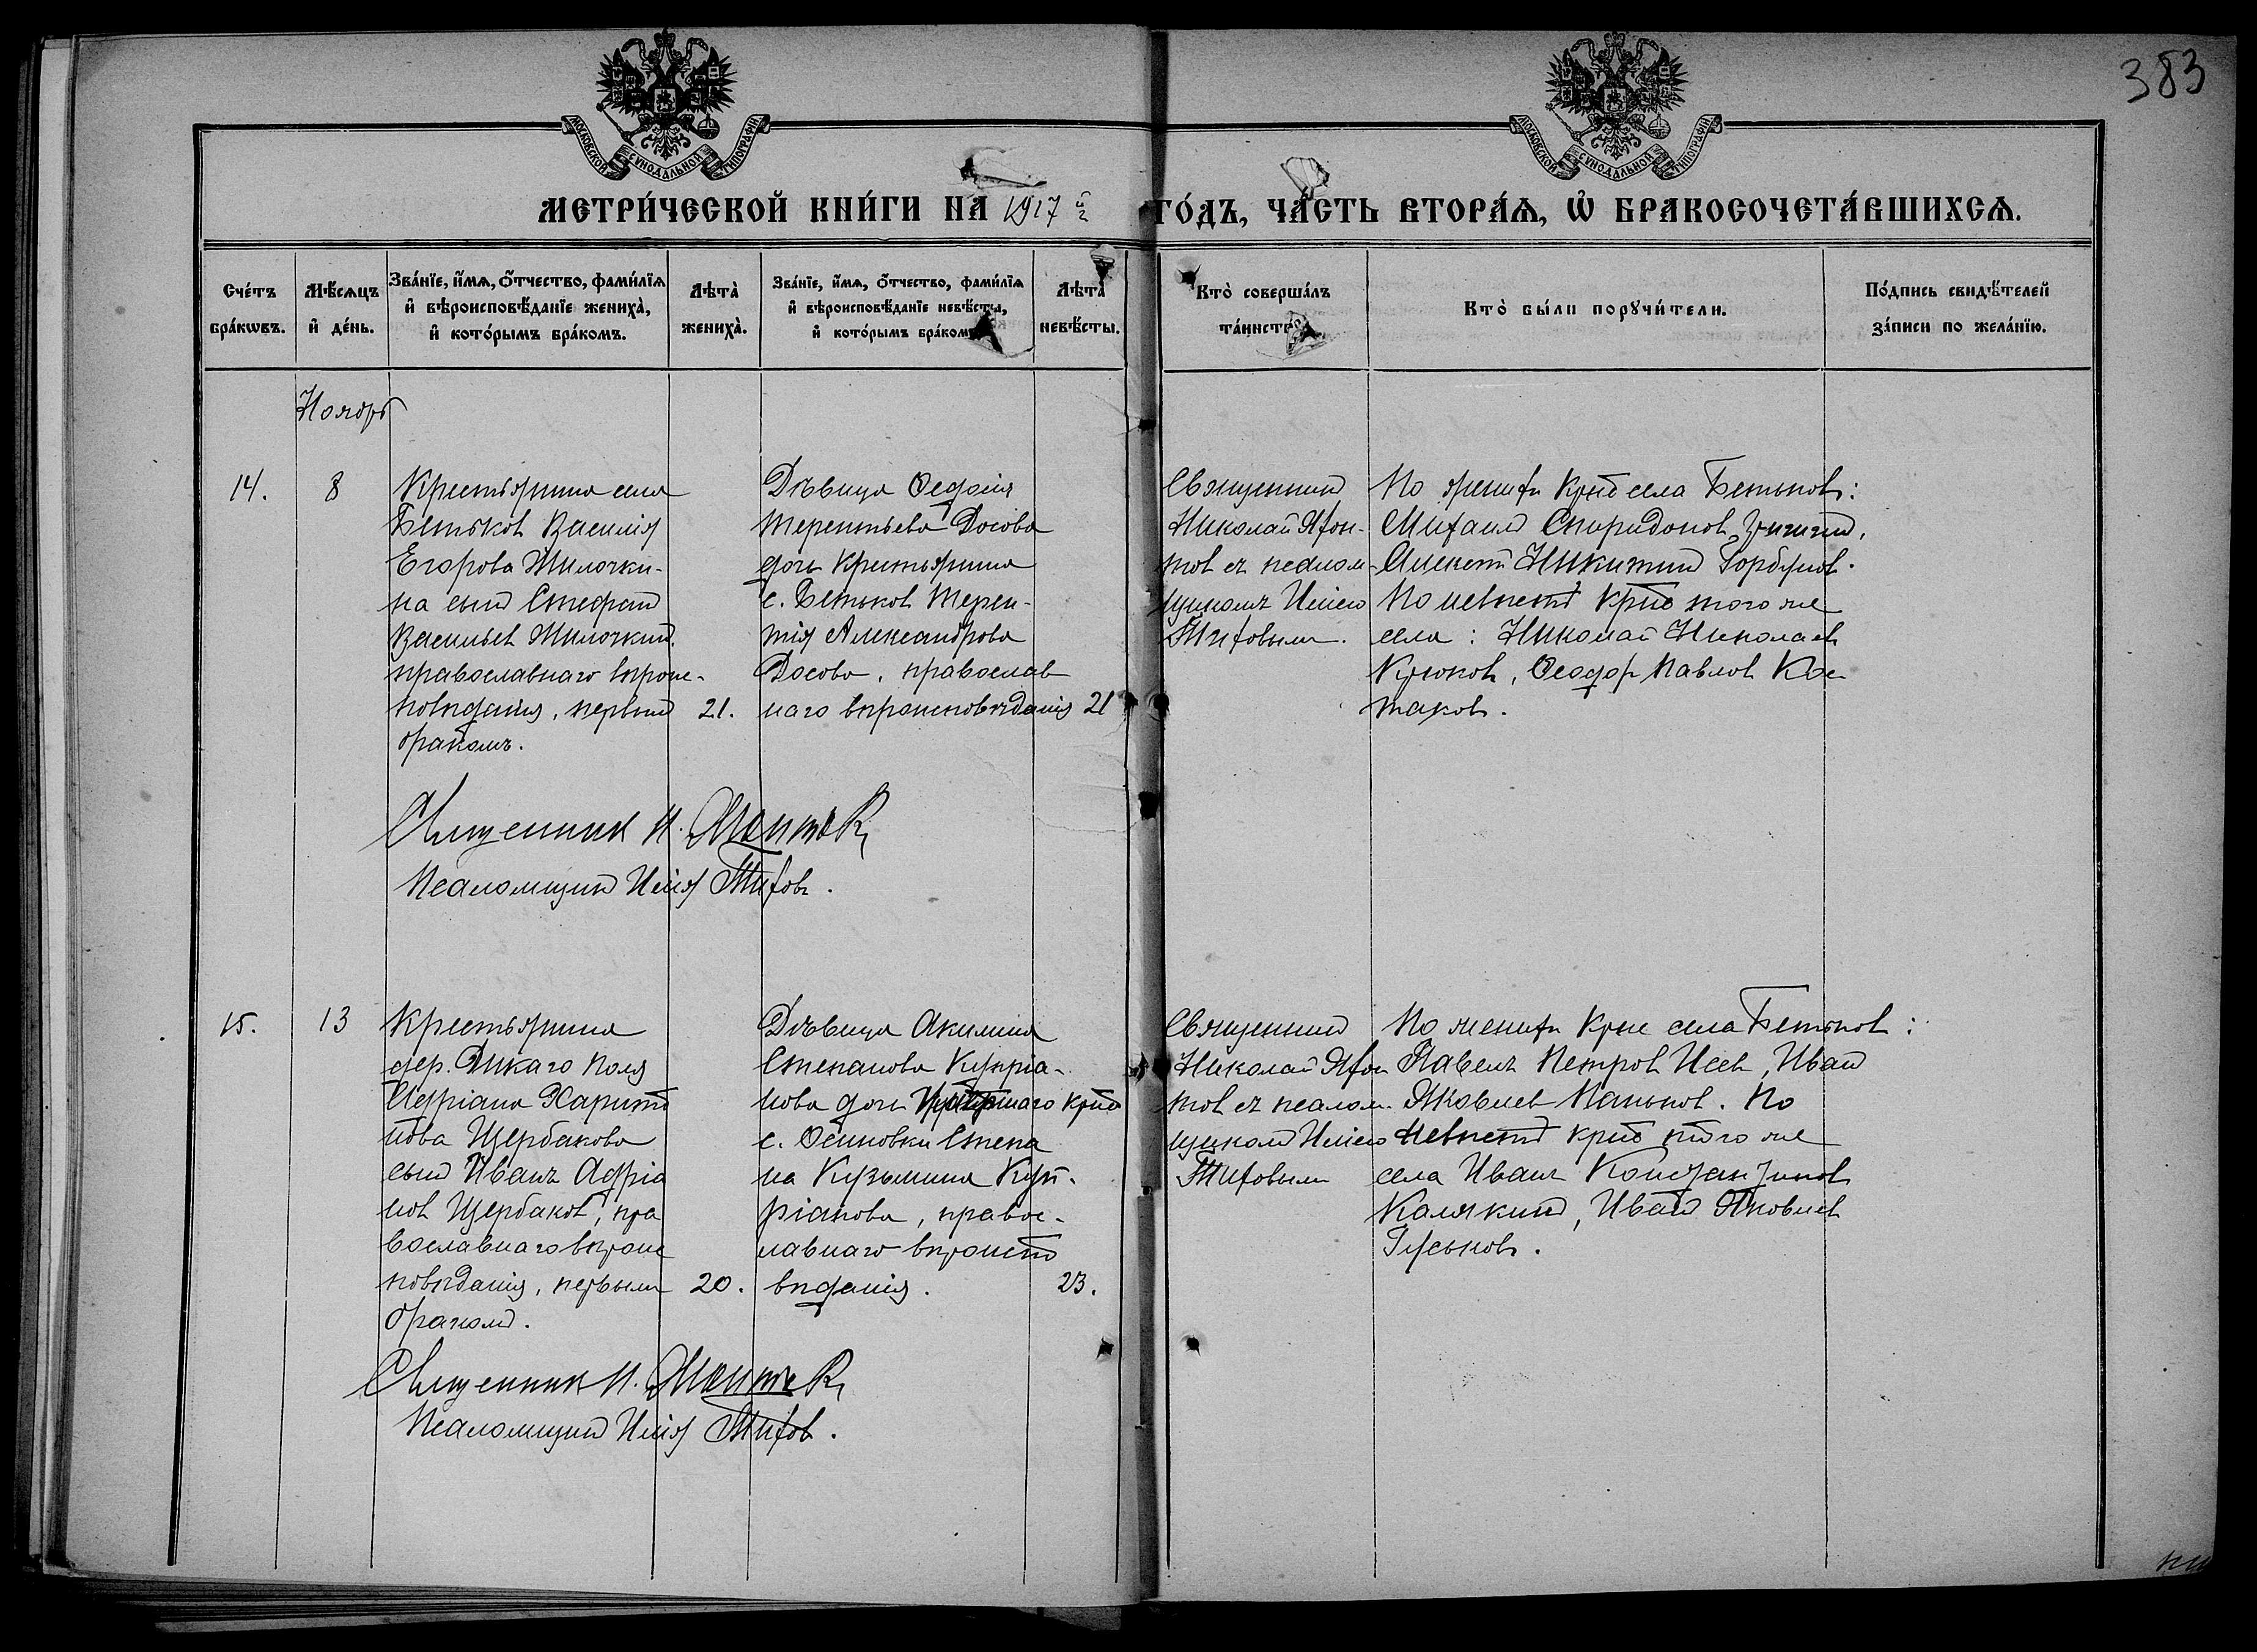 383
МОСКОВСКОЙ СѴНОДАЛЬНОЙ ТИПОГРАФІИ
МОСКОВСКОЙ СѴНОДАЛЬНОЙ ТИПОГРАФІИ
МЕТРИ́ЧЕСКОЙ КНИ́ГИ НА 1917 й ГО́ДЪ, ЧА́СТЬ ВТОРА́Ѧ, Ѡ҆ БРАКОСОЧЕТА́ВШИХСѦ.
Сче́тъ
бра́кѡвъ.
Мѣ́сѧцъ
и҆ де́нь.
Зва́нїе, и҆́мѧ, о҆́тчество, фами́лїѧ
и҆ вѣроисповѣ́данїе жениха̀,
и҆ кото́рымъ бра́комъ.
Лѣта̀
жениха̀.
Зва́нїе, и҆́мѧ, о҆́тчество, фами́лїѧ
и҆ вѣроисповѣ́данїе невѣ́сты,
и҆ кото́рымъ бра́комъ
Лѣта̀
невѣ́сты.
Кто̀ соверша́лъ
та́инство
Кто̀ бы́ли порꙋчи́тели.
По́дпись свидѣ́телей
за́писи по жела́нїю.
Ноябрь
14.
8
Крестьянина села
Бетьков Василія
Егорова Милочки-
на сын Стефан
Васильев Милочкин.
православнаго вѣроис-
повѣданія, первым
браком.
21.
Дѣвица Ѳедосія
Терентьева Досова
дочь Крестьянина
с. Бетьков Терен-
тія Александрова
Досова, православ
наго вѣроисповѣданія
21
Священник
Николай Афон-
тов съ псалом-
щиком Иліею
Титовым.
По женихѣ Крест села Бетьков:
Михаил Спиридонов
Никитин Горбунов.
По невѣстѣ крест того же
села: Николай Николаев
Крюков, Ѳеодор Павлов Кос
таков.
Священник Н. Афонтов
Псаломщик Илія Титов.
15.
13
Крестьянина
дер. Дикаго Поля
Адріана Харито
нова Щербакова
сын Иванъ Адріа
нов Щербаков, пра
вославнаго вѣроис
повѣданія, первым
браком.
20.
Дѣвица Акилина
Степанова Купріа-
нова дочь крест
с. Осиновки Степа
на Кузьмина Куп-
ріанова, правос-
лавнаго вѣроиспо
вѣданія.
23.
Священник
Николай Афон
тов съ псалом-
щиком Иліею
Титовым
По женихѣ Крес села Бетьков:
Павелъ Петров Исев, Иван
Яковлев Паньков. По
невѣстѣ крест того же
села Иванъ Константинов
Калякин, Иван Яковлев
Гуськов.
Священник Н. Афонтов
Псаломщик Илія Титов.